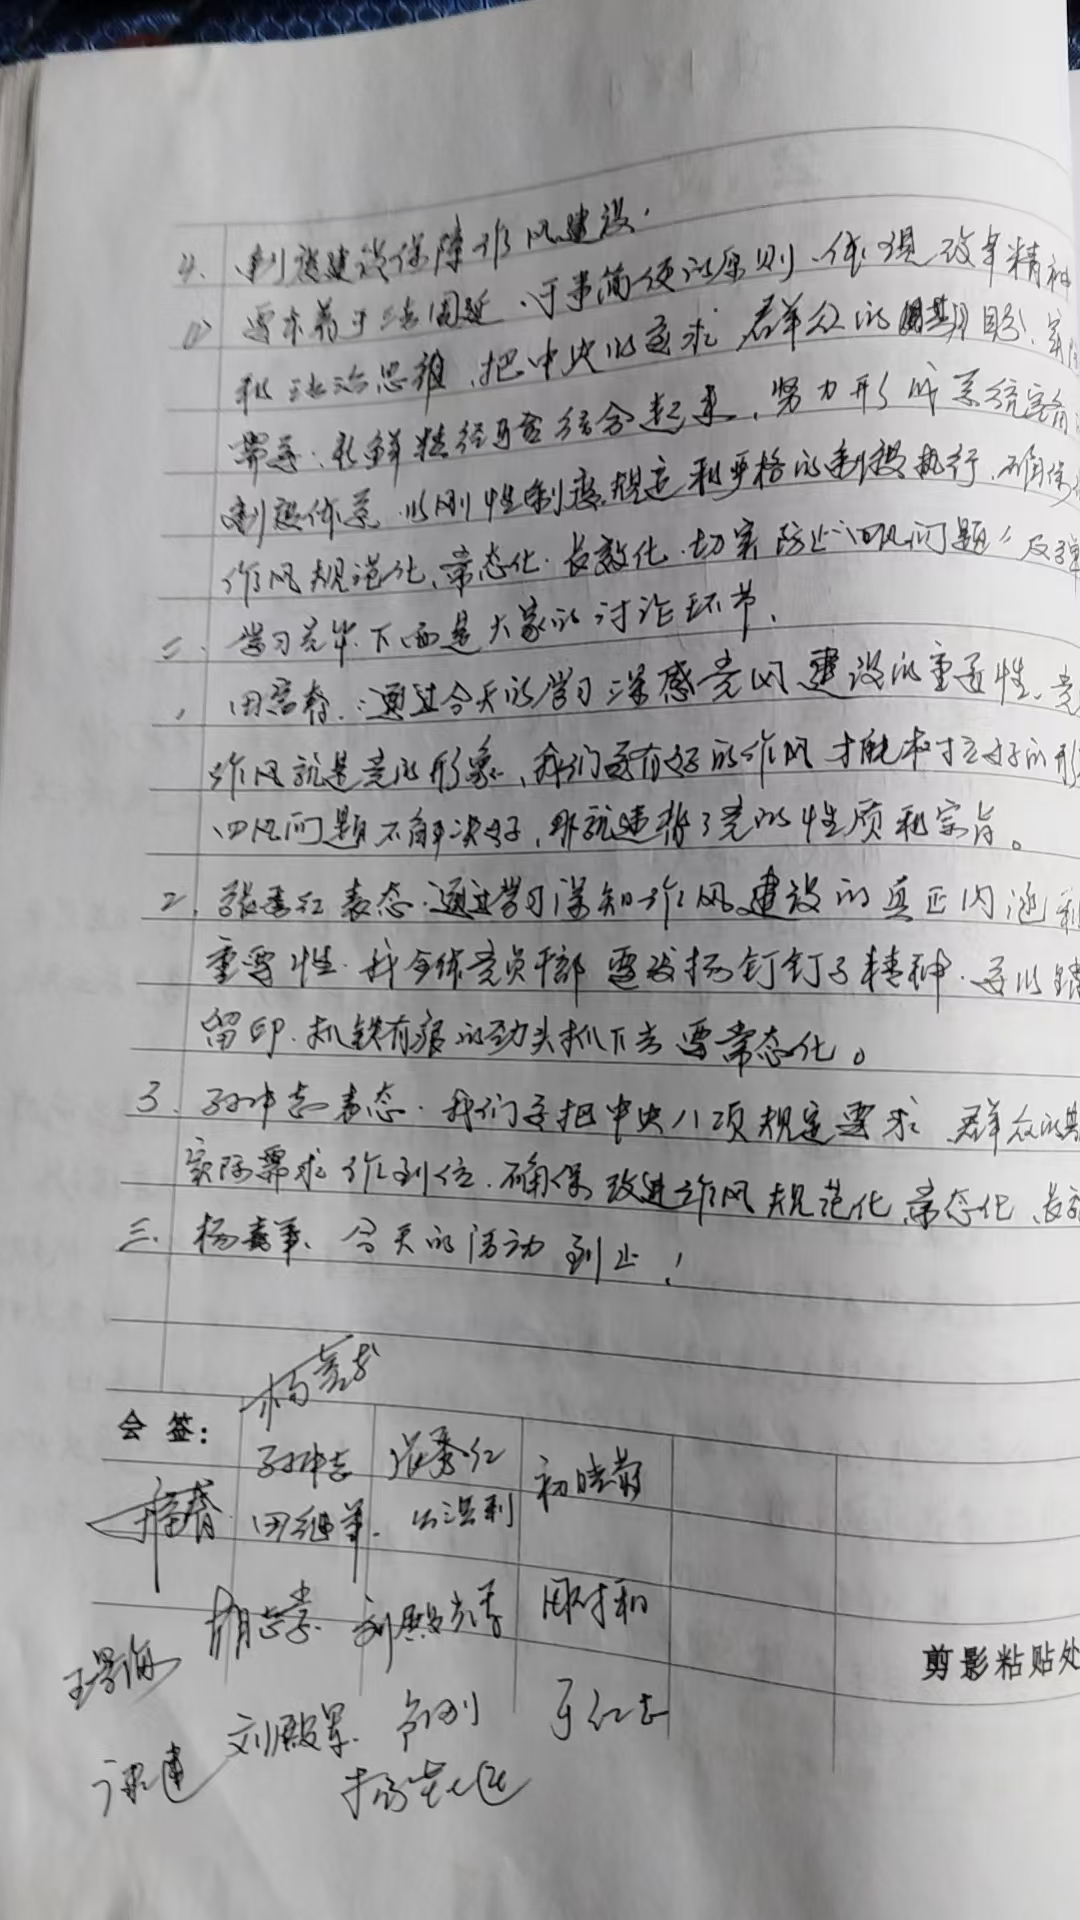 4. 制度建设保障作风建设.
要本着于法周延、于事简便的原则、体现改革精神
和法治思维、把中央的要求 群众的期盼、实际
需要、新鲜经验结合起来、努力形成系统完备的
制度体系、以刚性制度规定和严格的制度执行、确保
作风规范化、常态化、长效化、切实防止“四风问题”反弹
二、学习完毕、下面是大家的讨论环节、
、通过今天的学习深感党风建设的重要性、党
作风就是党的形象、我们要有好的作风才能树立好的形
四风问题不解决好、那就违背了党的性质和宗旨。
2、张秀红表态、通过学习深知作风建设的真正内涵和
重要性、我全体党员干部要发扬钉钉子精神、要以踏
留印、抓铁有痕的劲头抓下去要常态化。
3、孙中志表态、我们要把中央八项规定要求 群众的
实际需求作到位、确保改进作风规范化、常态化、长
三、今天的活动到止！
会签：
孙中志 张秀红 初晓
田继军
胡志孝
刘殿军
剪影粘贴处